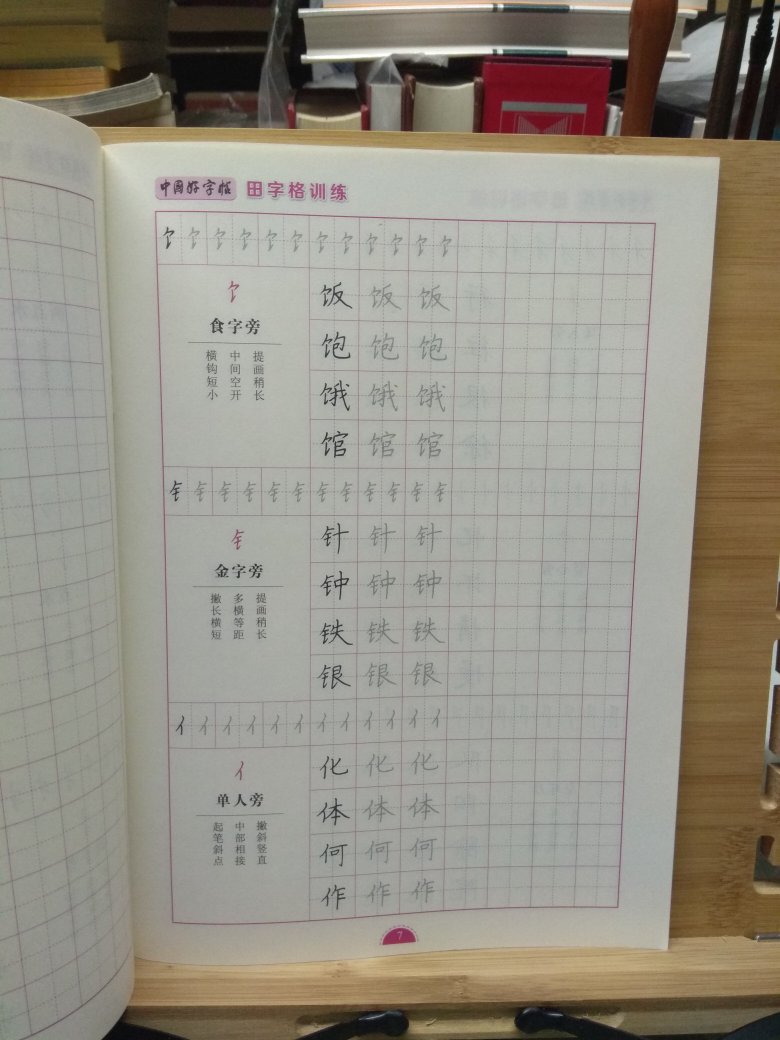 中国好字帖 田字格训练
饣 饣 饣 饣 饣 饣 饣 饣 饣 饣 饣 饣
饣
食字旁
横钩短小
中间空开
提画稍长
饭 饭 饭
饱 饱 饱
饿 饿 饿
馆 馆 馆
钅 钅 钅 钅 钅 钅 钅 钅 钅 钅 钅 钅
钅
金字旁
撇长横短
多横等距
提画稍长
针 针 针
钟 钟 钟
铁 铁 铁
银 银 银
亻 亻 亻 亻 亻 亻 亻 亻 亻 亻 亻 亻
亻
单人旁
起笔斜点
中部相接
撇斜竖直
化 化 化
体 体 体
何 何 何
作 作 作
7